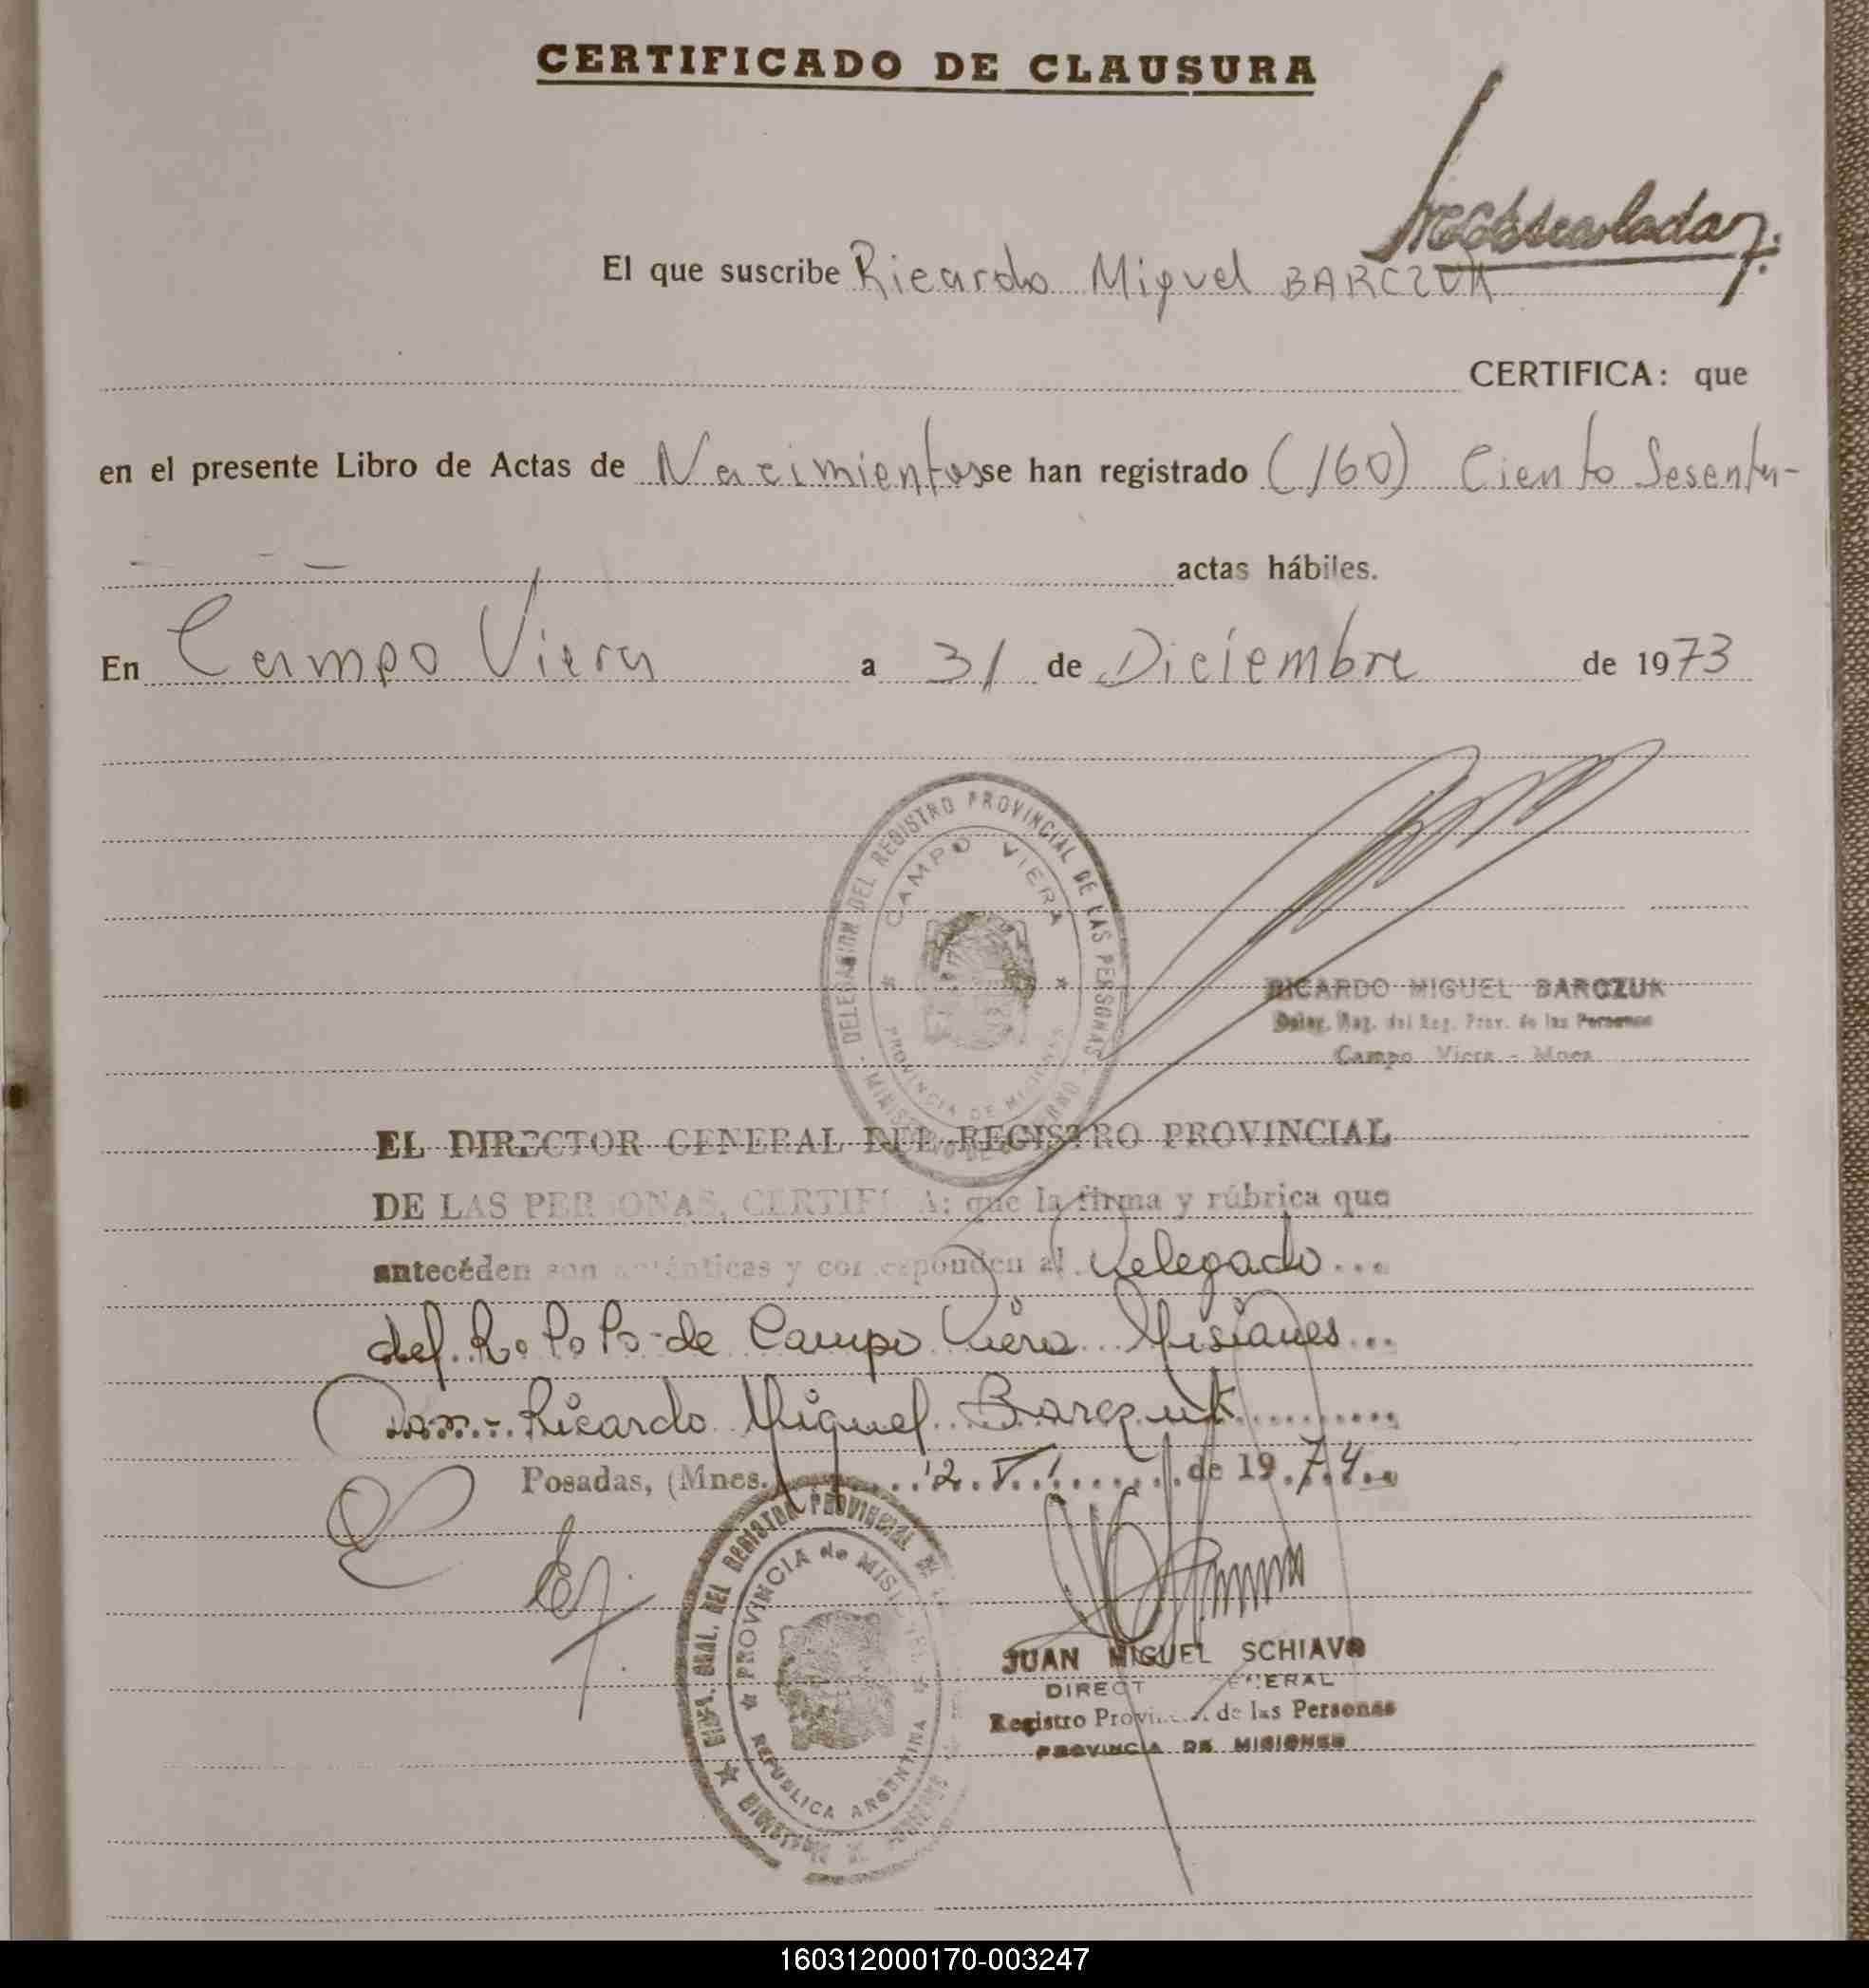 CERTIFICADO DE CLAUSURA
El que suscribe Ricardo Miguel BARCZUK
CERTIFICA: que
en el presente Libro de Actas de Nacimientos se han registrado (160) Ciento Sesenta-
actas hábiles.
En Campo Viera a 31 de Diciembre de 1973
DELEGACION DEL REGISTRO PROVINCIAL DE LAS PERSONAS
CAMPO VIERA
PROVINCIA DE MISIONES
MINISTERIO DE GOBIERNO
RICARDO MIGUEL BARCZUK
Deleg. Reg. del Reg. Prov. de las Personas
Campo Viera - Mnes
EL DIRECTOR GENERAL DEL REGISTRO PROVINCIAL
DE LAS PERSONAS, CERTIFICA: que la firma y rúbrica que
antecéden son auténticas y corresponden al Delegado...
del R. P. P. de Campo Viera Misiones...
Don.- Ricardo Miguel Barczuk..........
Posadas, (Mnes. 12. V. de 1974
DIREC. GRAL. DEL REGISTRO PROVINCIAL DE
PROVINCIA de MISIONES
REPUBLICA ARGENTINA
JUAN MIGUEL SCHIAVO
DIRECTOR GENERAL
Registro Provincial de las Personas
PROVINCIA DE MISIONES
160312000170-003247